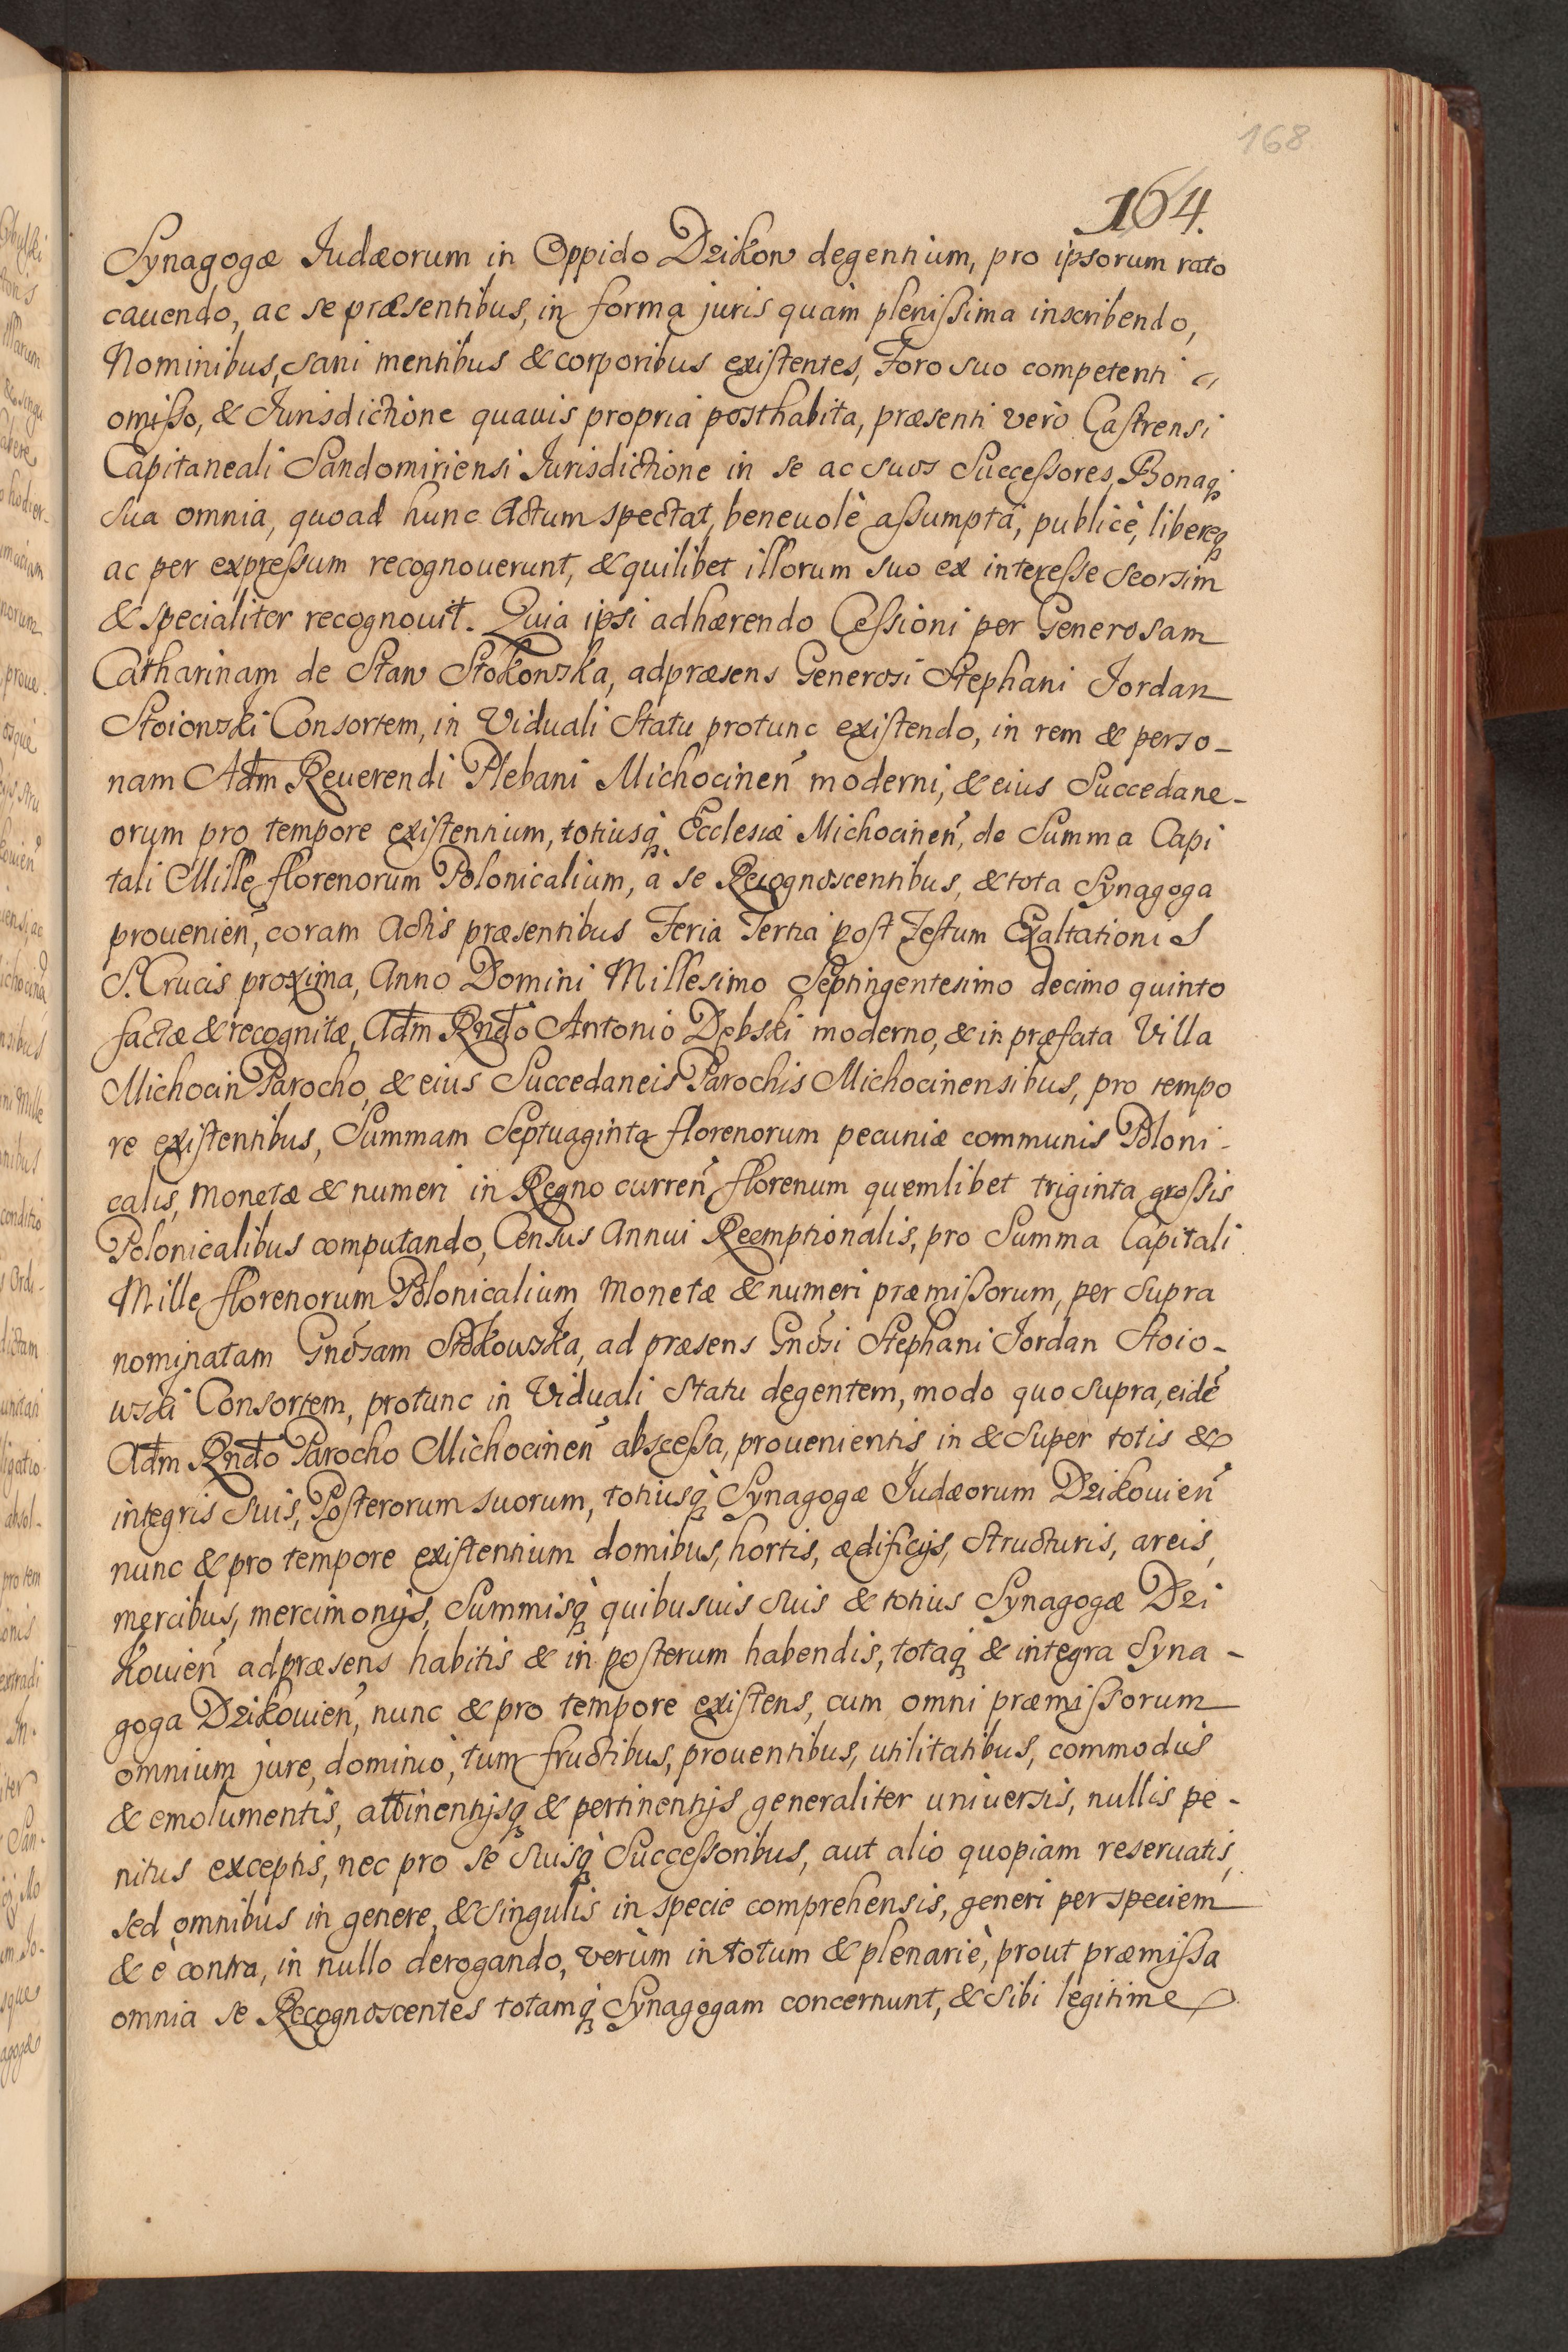 168
164.
Synagogæ Iudæorum in Oppido Dzikow degentium, pro ipsorum rato
cauendo, ac se præsentibus, in forma juris quam plenissima inscribendo,
Nominibus, sani mentibus & corporibus existentes, Foro suo competenti
omisso, & Iurisdictione quauis propria posthabita, præsenti verò Castrensi
Capitaneali Sandomiriensi Iurisdictione in se ac suos Successores, Bonaq
sua omnia, quoad hunc Actum spectat, beneuolè assumptâ, publicè, libereq
ac per expressum recognouerunt, & quilibet illorum suo ex interesse seorsim
& specialiter recognouit. Quia ipsi adhærendo Cessioni per Generosam
Catharinam de Staw Stokowska, adpræsens Generosi Stephani Jordan
Stoiowski Consortem, in Viduali Statu protunc existendo, in rem & perso-
nam Adm Reuerendi Plebani Michocinen̄ moderni, & eius Succedane-
orum pro tempore existentium, totiusq̀ Ecclesiæ Michocinen̄, de Summa Capi
tali Mille florenorum Polonicalium, à se Recognoscentibus, & tota Synagoga
prouenien̄, coram Actis præsentibus Feria Tertia post Festum Exaltationis
S. Crucis proxima, Anno Domini Millesimo Septingentesimo decimo quinto
factæ & recognitæ, Adm Rndo Antonio Dębski moderno, & in præfata Villa
Michocin Parocho, & eius Succedaneis Parochis Michocinensibus, pro tempo
re existentibus, Summam Septuaginta florenorum pecuniæ communis Poloni-
calis, Monetæ & numeri in Regno curren̄ florenum quemlibet triginta grossis
Polonicalibus computando, Census Annui Reemptionalis, pro Summa Capitali
Mille florenorum Polonicalium Monetæ & numeri præmissorum, per supra
nominatam Gnōsam Stokowska, ad præsens Gnōsi Stephani Jordan Stoio-
wski Consortem, protunc in Viduali Statu degentem, modo quo supra, eidē
Adm Rndo Parocho Michocinen̄ abscessa, prouenientis in & super totis &
integris suis, Posterorum suorum, totiusq̀ Synagogæ Judæorum Dzikouien̄
nunc & pro tempore existentium domibus, hortis, ædificijs, structuris, areis,
mercibus, mercimonijs, Summisq̀ quibusuis suis & totius Synagogæ Dzi
kouien̄ adpræsens habitis & in posterum habendis, totaq̀ & integra Syna-
goga Dzikouien̄, nunc & pro tempore existens, cum omni præmissorum
omnium jure, dominio, tum fructibus, prouentibus, utilitatibus, commodis
& emolumentis, attinentijsq̀ & pertinentijs generaliter uniuersis, nullis pe-
nitus exceptis, nec pro se suisq̀ Successoribus, aut alio quopiam reseruatis,
sed omnibus in genere, & singulis in specie comprehensis, generi per speciem
& è contra, in nullo derogando, verùm in totum & plenariè, prout præmissa
omnia se Recognoscentes totamq̀ Synagogam concernunt, & sibi legitime